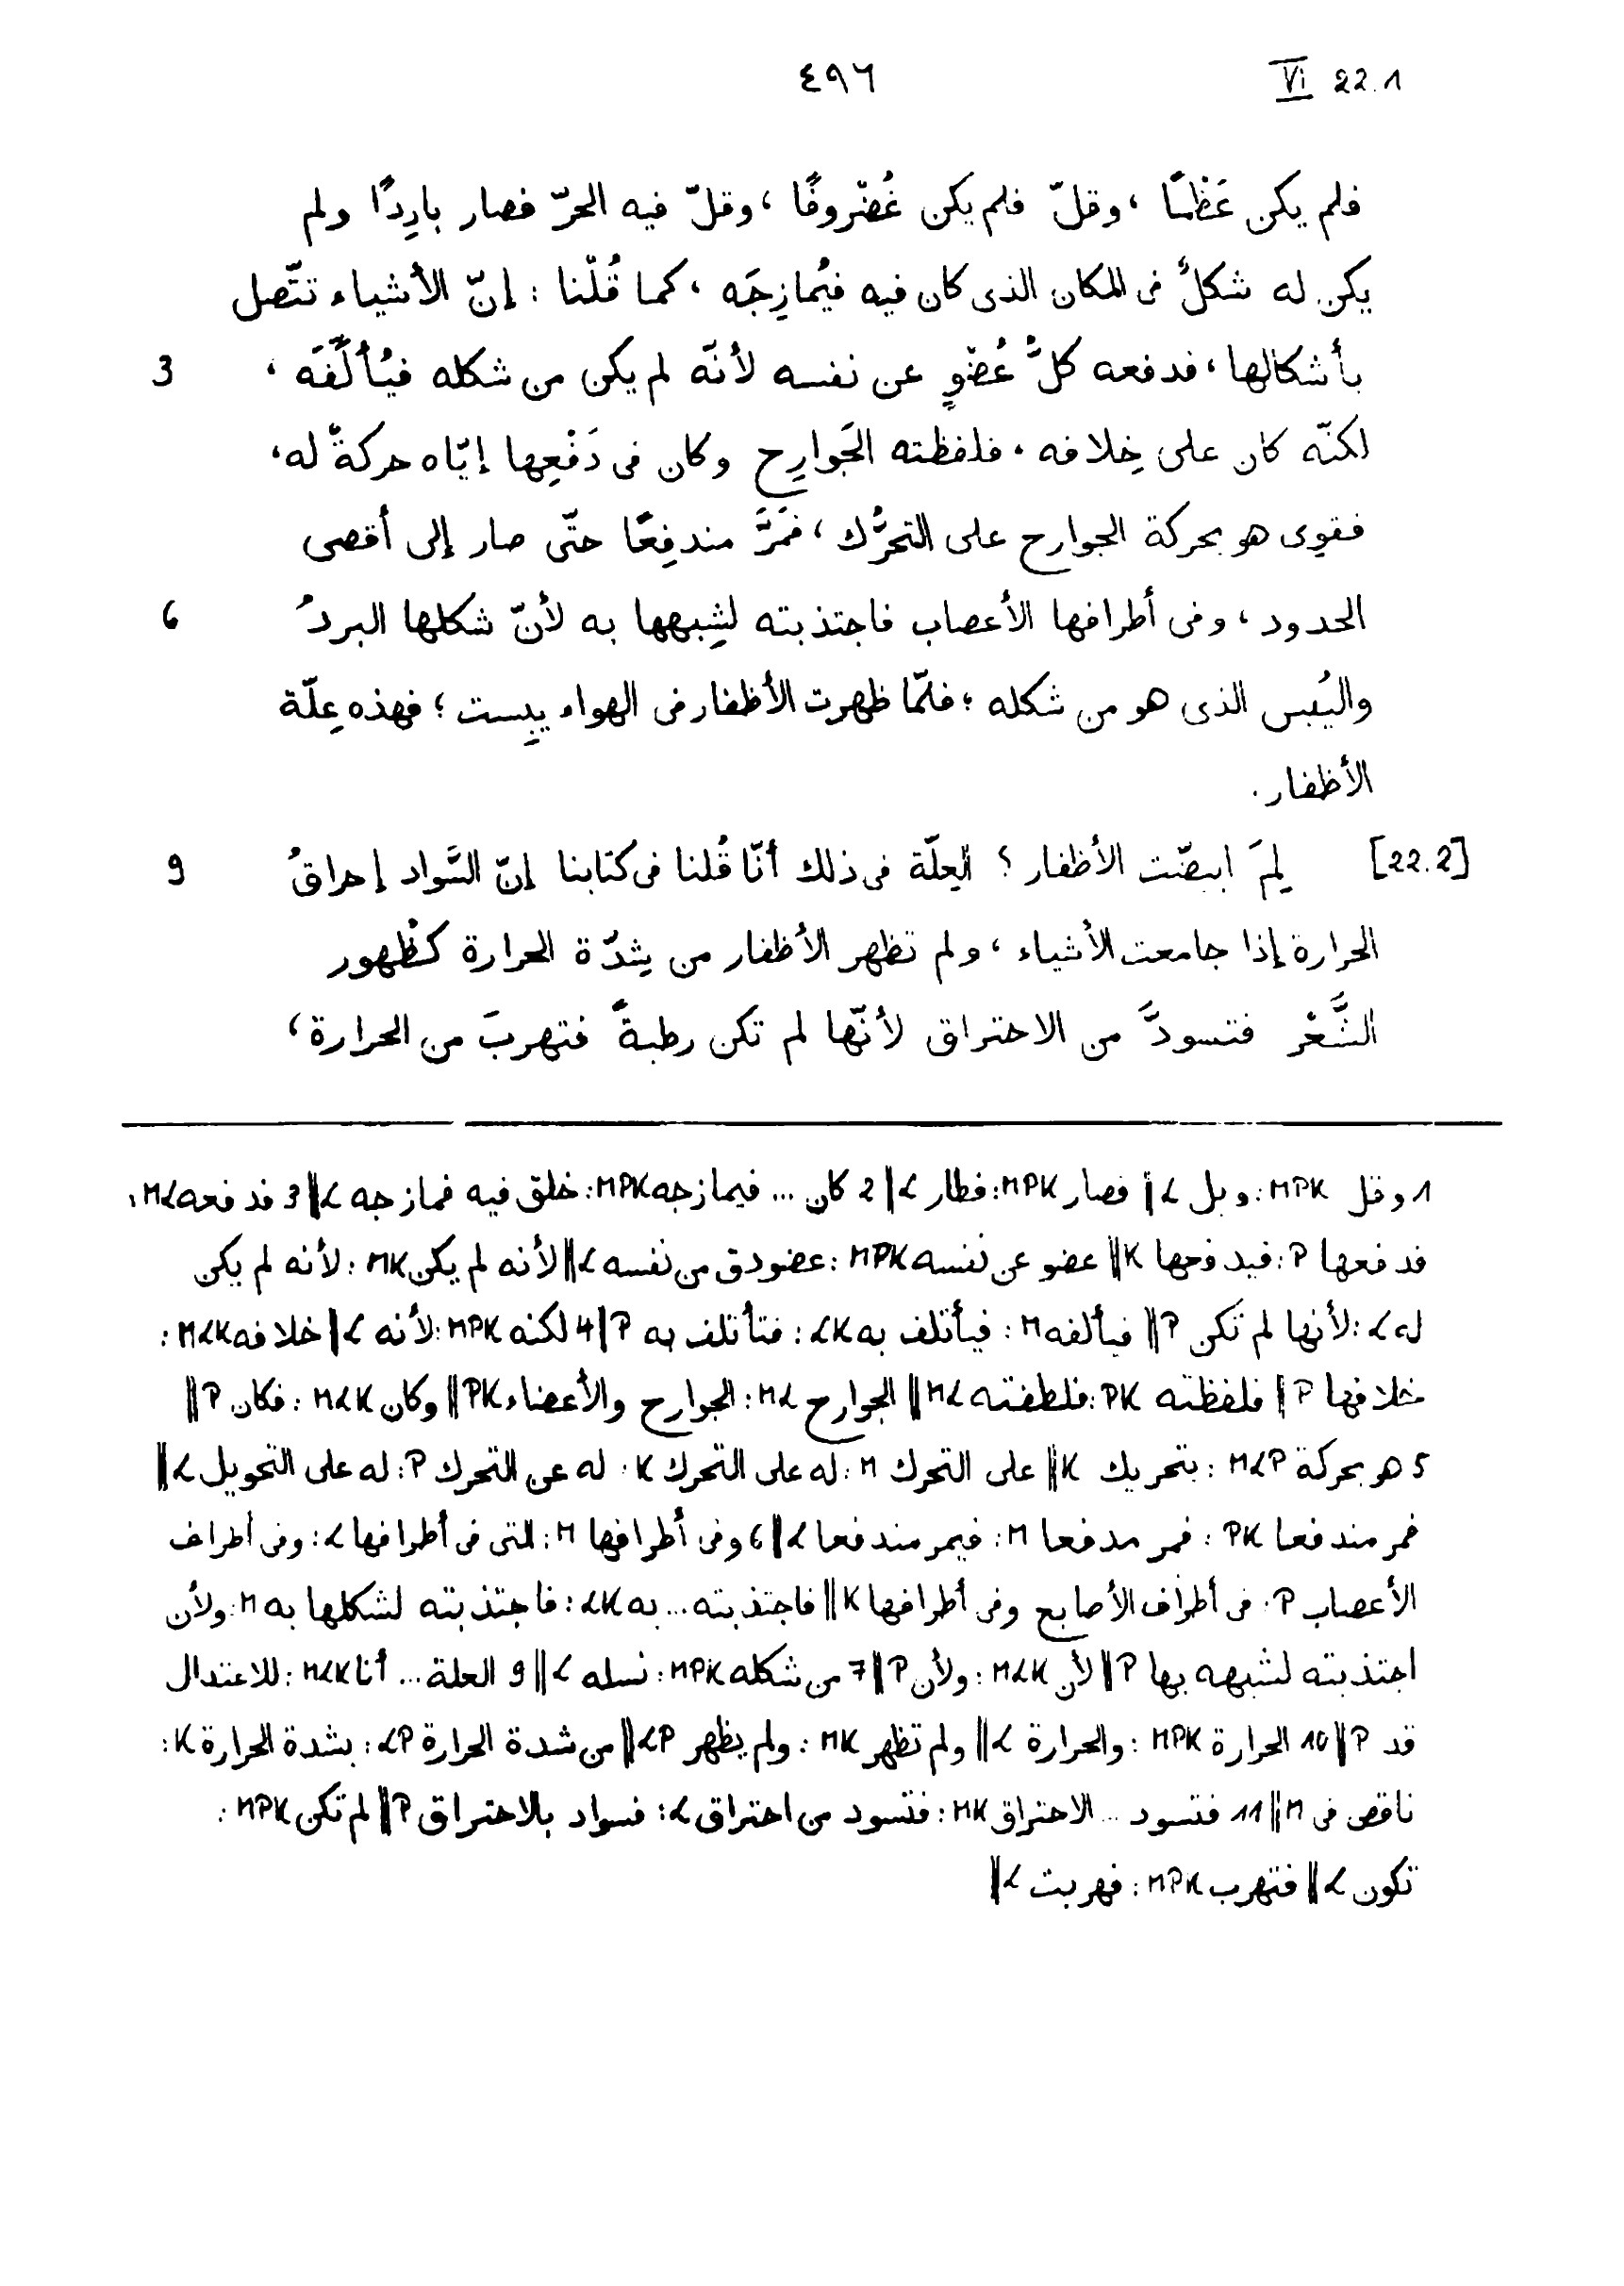 VI 22.1 ٤٩٦
فلم يكن عَظْمًا ، وقلّ فلم يكن غُضْروفًا ، وقلّ فيه الحرّ فصار بارِدًا ولم
يكن له شكلٌ فى المكان الذى كان فيه فيُمازِجَه ، كما قُلْنا : إنّ الأشياء تتّصل
بأشكالها ، فدفعه كلُّ عُضْوٍ عن نفسه لأنّه لم يكن من شكله فيُألِّفَه ، 3
لكنّه كان على خِلافه ، فلفظته الجَوارِح وكان فى دَفْعِها إيّاه حركةٌ له ،
فقوِى هو بحركة الجوارح على التحرُّك ، فمَرَّ مندفِعًا حتّى صار إلى أقصى
الحدود ، وفى أطرافها الأعصاب فاجتذبته لشِبهها به لأنّ شكلها البردُ 6
واليُبس الذى هو من شكله ؛ فلمّا ظهرت الأظفار فى الهواء يبِست ؛ فهذه عِلّة
الأظفار .
[22.2] لِمَ ابيضّت الأظفار ؟ العِلّة فى ذلك أنّا قُلنا فى كتابنا إنّ السَّواد إحراقُ 9
الحرارة إذا جامعت الأشياء ، ولم تظهر الأظفار من شِدّة الحرارة كظُهور
الشَّعْر فتسودَّ من الاحتراق لأنّها لم تكن رطبةً فتهربَ من الحرارة ،
1 وقل MPK : وبل L || فصار MPK : فطار L || 2 كان ... فيمازجه MPK : خلق فيه فمازجه L || 3 فدفعه ML :
فدفعها P : فيدفعها K || عضو عن نفسه MPK : عضو دق من نفسه L || لأنه لم يكن MK : لأنه لم يكن
له L : لأنها لم تكن P || فيألفه M : فيأتلف به LK : فتأتلف به P || 4 لكنه MPK : لأنه L || خلافه MLK :
خلافها P || فلفظته PK : فلطفته ML || الجوارح ML : الجوارح والأعضاء PK || وكان MLK : فكان P ||
5 هو بحركة MLP : بتحريك K || على التحرك M : له على التحرك K : له عن التحرك P : له على التحويل L ||
فمر مندفعا PK : فمر مدفعا M : فيمر مندفعا L || 6 وفى أطرافها M : التى فى أطرافها L : وفى أطراف
الأعصاب P : فى أطراف الأصابع وفى أطرافها K || فاجتذبته ... به LK : فاجتذبته لشكلها به M : ولأن
اجتذبته لشبهه بها P || لأن MLK : ولأن P || 7 من شكله MPK : نسله L || 9 العلة ... أنا MLK : للاعتدال
قد P || 10 الحرارة MPK : والحرارة L || ولم تظهر MK : ولم يظهر LP || من شدة الحرارة LP : بشدة الحرارة K :
ناقص فى M || 11 فتسود ... الاحتراق MK : فتسود من احتراق L : فسواد بالاحتراق P || لم تكن MPK :
تكون L || فتهرب MPK : فهربت L ||